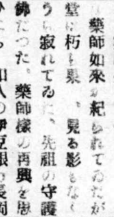 藥師如來が紀られてゐたが
堂に朽ち果　見る影もなく
うち寂れてゐた、先祖の守護
佛だつた。藥師樣の再興を思